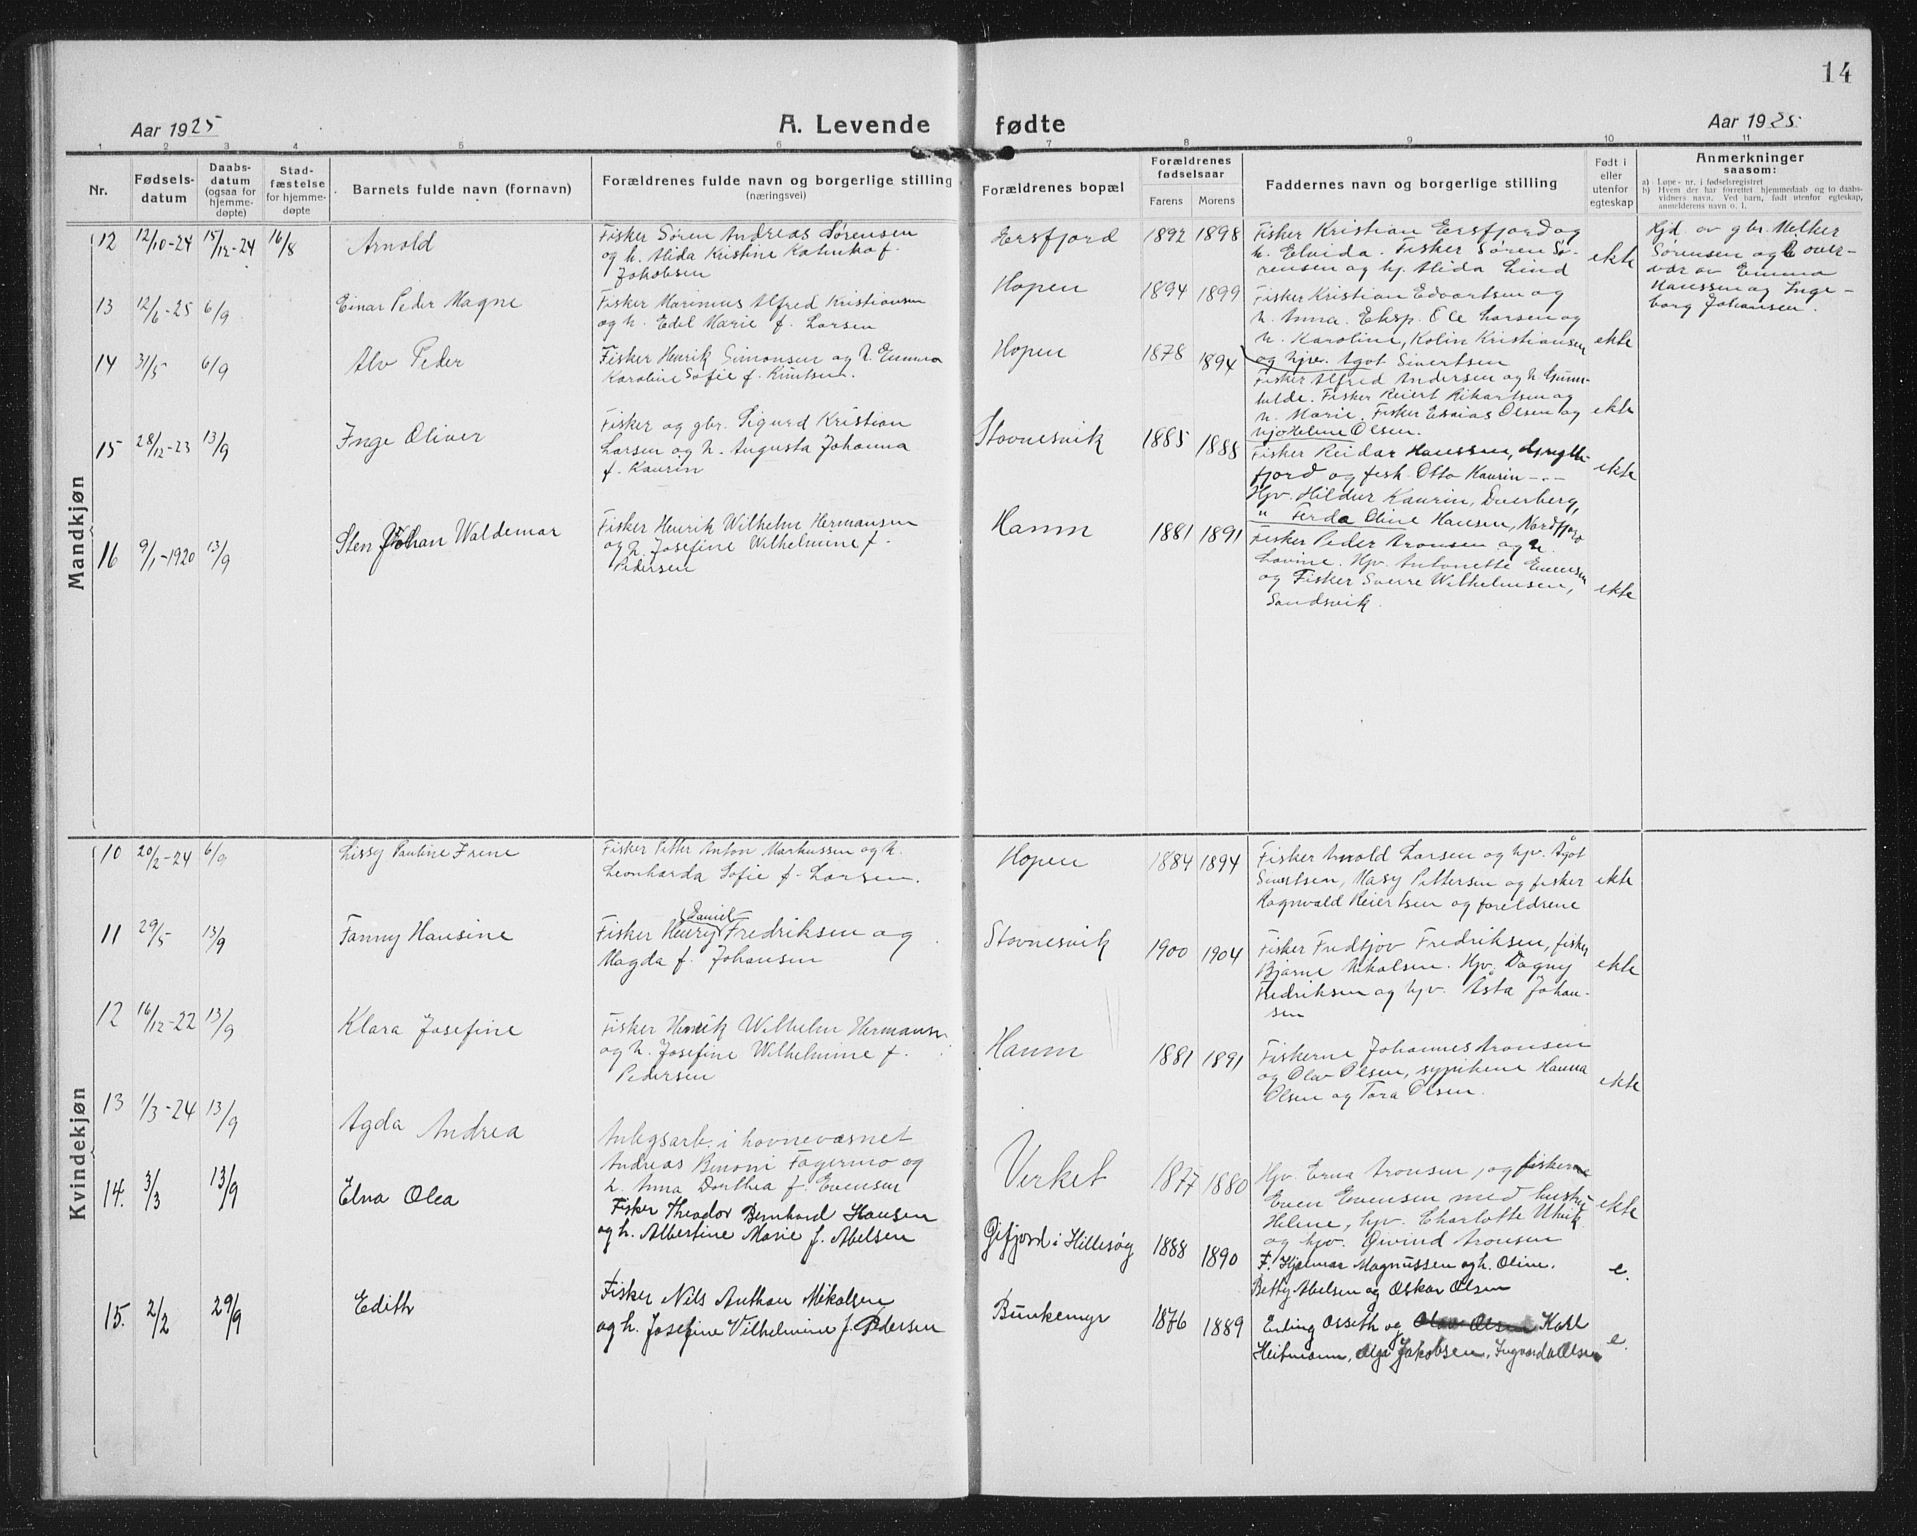 14
Aar 1925
A. Levende fødte
Aar 1925
1 2 3 4 5 6 7 8 9 10 11
Nr.
Fødsels-
datum
Daabs-
datum
(ogsaa for
hjemme-
døpte)
Stad-
fæstelse
for hjemme-
døpte
Barnets fulde navn (fornavn)
Forældrenes fulde navn og borgerlige stilling
(næringsvei)
Forældrenes bopæl
Forældrenes
fødselsaar
Farens Morens
Faddernes navn og borgerlige stilling
Født i
eller
utenfor
egteskap
Anmerkninger
saasom:
a) Løpe-nr. i fødselsregistret
b) Hvem der har forrettet hjemmedaab og to daabs-
vidners navn. Ved barn, født utenfor egteskap,
anmelderens navn o. l.
Mandkjøn
12 12/10-24 15/12-24 16/8 Arnold
Fisker Søren Andreas Sørensen
og h. Alida Kristine Katinka f.
Jakobsen
Ersfjord 1892 1898
Fisker Kristian Ersfjord og
h. Elvida. Fisker Søren Sø-
rensen og hj. Alida Lind
ekte
Hjd. av gbr. Melker
Sørensen og b over-
vær av Emma
Hanssen og Inge-
borg Johansen.
13 12/6-25 6/9 Einar Peder Magne
Fisker Marinius Alfred Kristiansen
og h. Edel Marie f. Larsen
Hopen 1894 1899
Fisker Kristian Edvartsen og
h. Anna. Eksp. Ole Larsen og
h. Karoline, Kolin Kristiansen
og hjv. Agot Sivertsen
ekte
14 31/5 6/9 Alv Peder
Fisker Henrik Simonsen og h. Emma
Karoline Sofie f. Knutsen.
Hopen 1878 1894
Fisker Alfred Andersen og h. Gunn-
hilde. Fisker Reiert Rikartsen og
h. Marie. Fisker Esaias Olsen og
hjv Helene Olsen.
ekte
15 28/12-23 13/9 Inge Oliver
Fisker og gbr. Sigurd Kristian
Larsen og h. Augusta Johanna
f. Kaurin
Stovnesvik 1885 1888
Fisker Reidar Hanssen, Gryllefjord
fjord og fisk. Otto Kaurin -..-
Hjv. Hildur Kaurin, Duerberg,
" Ferda Oline Hansen, Nordfjord
ekte
16 9/1-1920 13/9 Sten Johan Waldemar
Fisker Henrik Wilhelm Hermansen
og h. Josefine Wilhelmine f.
Pedersen
Hamn 1881 1891
Fisker Peder Aronsen og h.
Lovine. Hjv. Antonette Evensen
og Fisker Sverre Wilhelmsen,
Sandsvik.
ekte
Kvindekjøn
10 20/2-24 6/9 Lissy Pauline Irene
Fisker Petter Anton Markussen og h.
Leonharda Sofie f. Larsen.
Hopen 1884 1894
Fisker Arnold Larsen og hjv. Ågot
Sivertsen, Masy Pettersen og fisker
Ragnvald Reiertsen og foreldrene
ekte
11 29/5 13/9 Fanny Hansine
Daniel
Fisker Henry Fredriksen og
Magda f. Johansen
Stovnesvik 1900 1904
Fisker Fridtjov Fredriksen, fisker
Bjarne Nikolsen. Hjv. Dagny
Fredriksen og hjv. Åsta Johan-
sen
ekte
12 16/12-22 13/9 Klara Josefine
Fisker Henrik Wilhelm Hermansen
og h. Josefine Wilhelmine f.
Pedersen
Hamn 1881 1891
Fiskerne Johannes Aronsen
og Olav Olsen, sypikene Hanna
Olsen og Tora Olsen.
ekte
13 1/3-24 13/9 Agda Andrea
Anlegsarb. i havnevæsnet
Andreas Benoni Fagermo og
h. Anna Dorthea f. Evensen
Verket 1877 1880
Hjv. Erna Aronsen, og fiskerne
Even Evensen med hustru
Helene, hjv. Charlotte Utvik
og hjv. Øivind Aronsen
ekte
14. 3/3 13/9 Elna Olea
Fisker Theodor Bernhard Hansen
og h. Albertine Marie f. Abelsen
Gifjord i Hillesøy 1888 1890
F. Hjalmar Magnussen og h. Oline.
Betty Abelsen og Oskar Olsen
e.
15. 2/2 29/9 Edith
Fisker Nils Anthon Mikalsen
og h. Josefine Vilhelmine f. Pedersen
Bunkemyr 1876 1889
Erling Osseth og Olav Olsen Karl
Heitmann, Olga Jakobsen, Ingvarda Olsen
e.